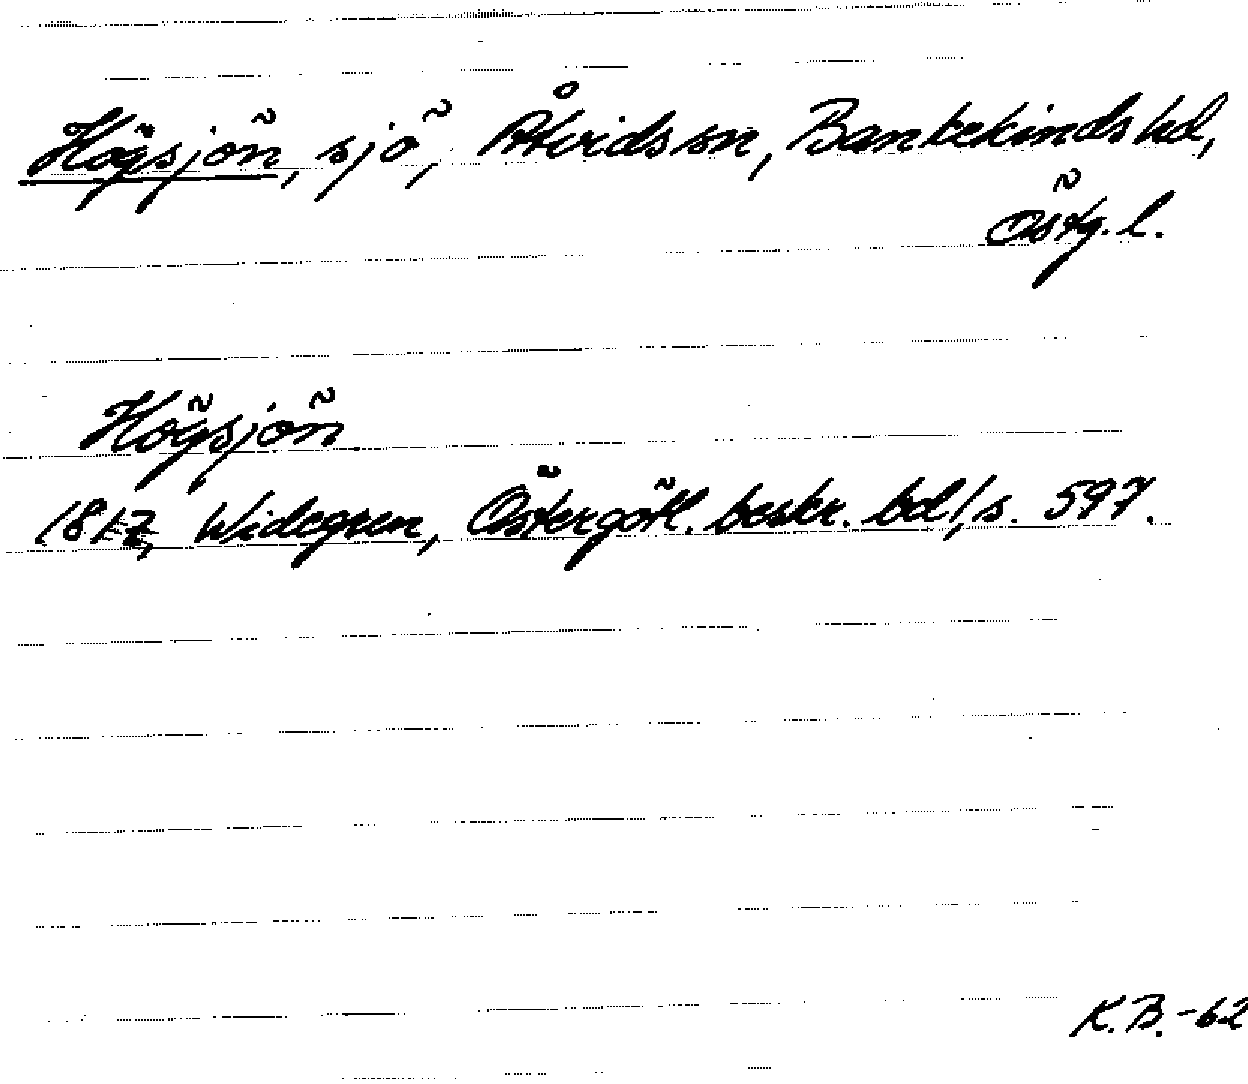 Högsjön, sjö, Åtvids sn, Bankekinds hd,
Östg. l.
Högsjön
1817, Widegren, Östergötl. beskr. bd 1, s. 597.
K.B. -62